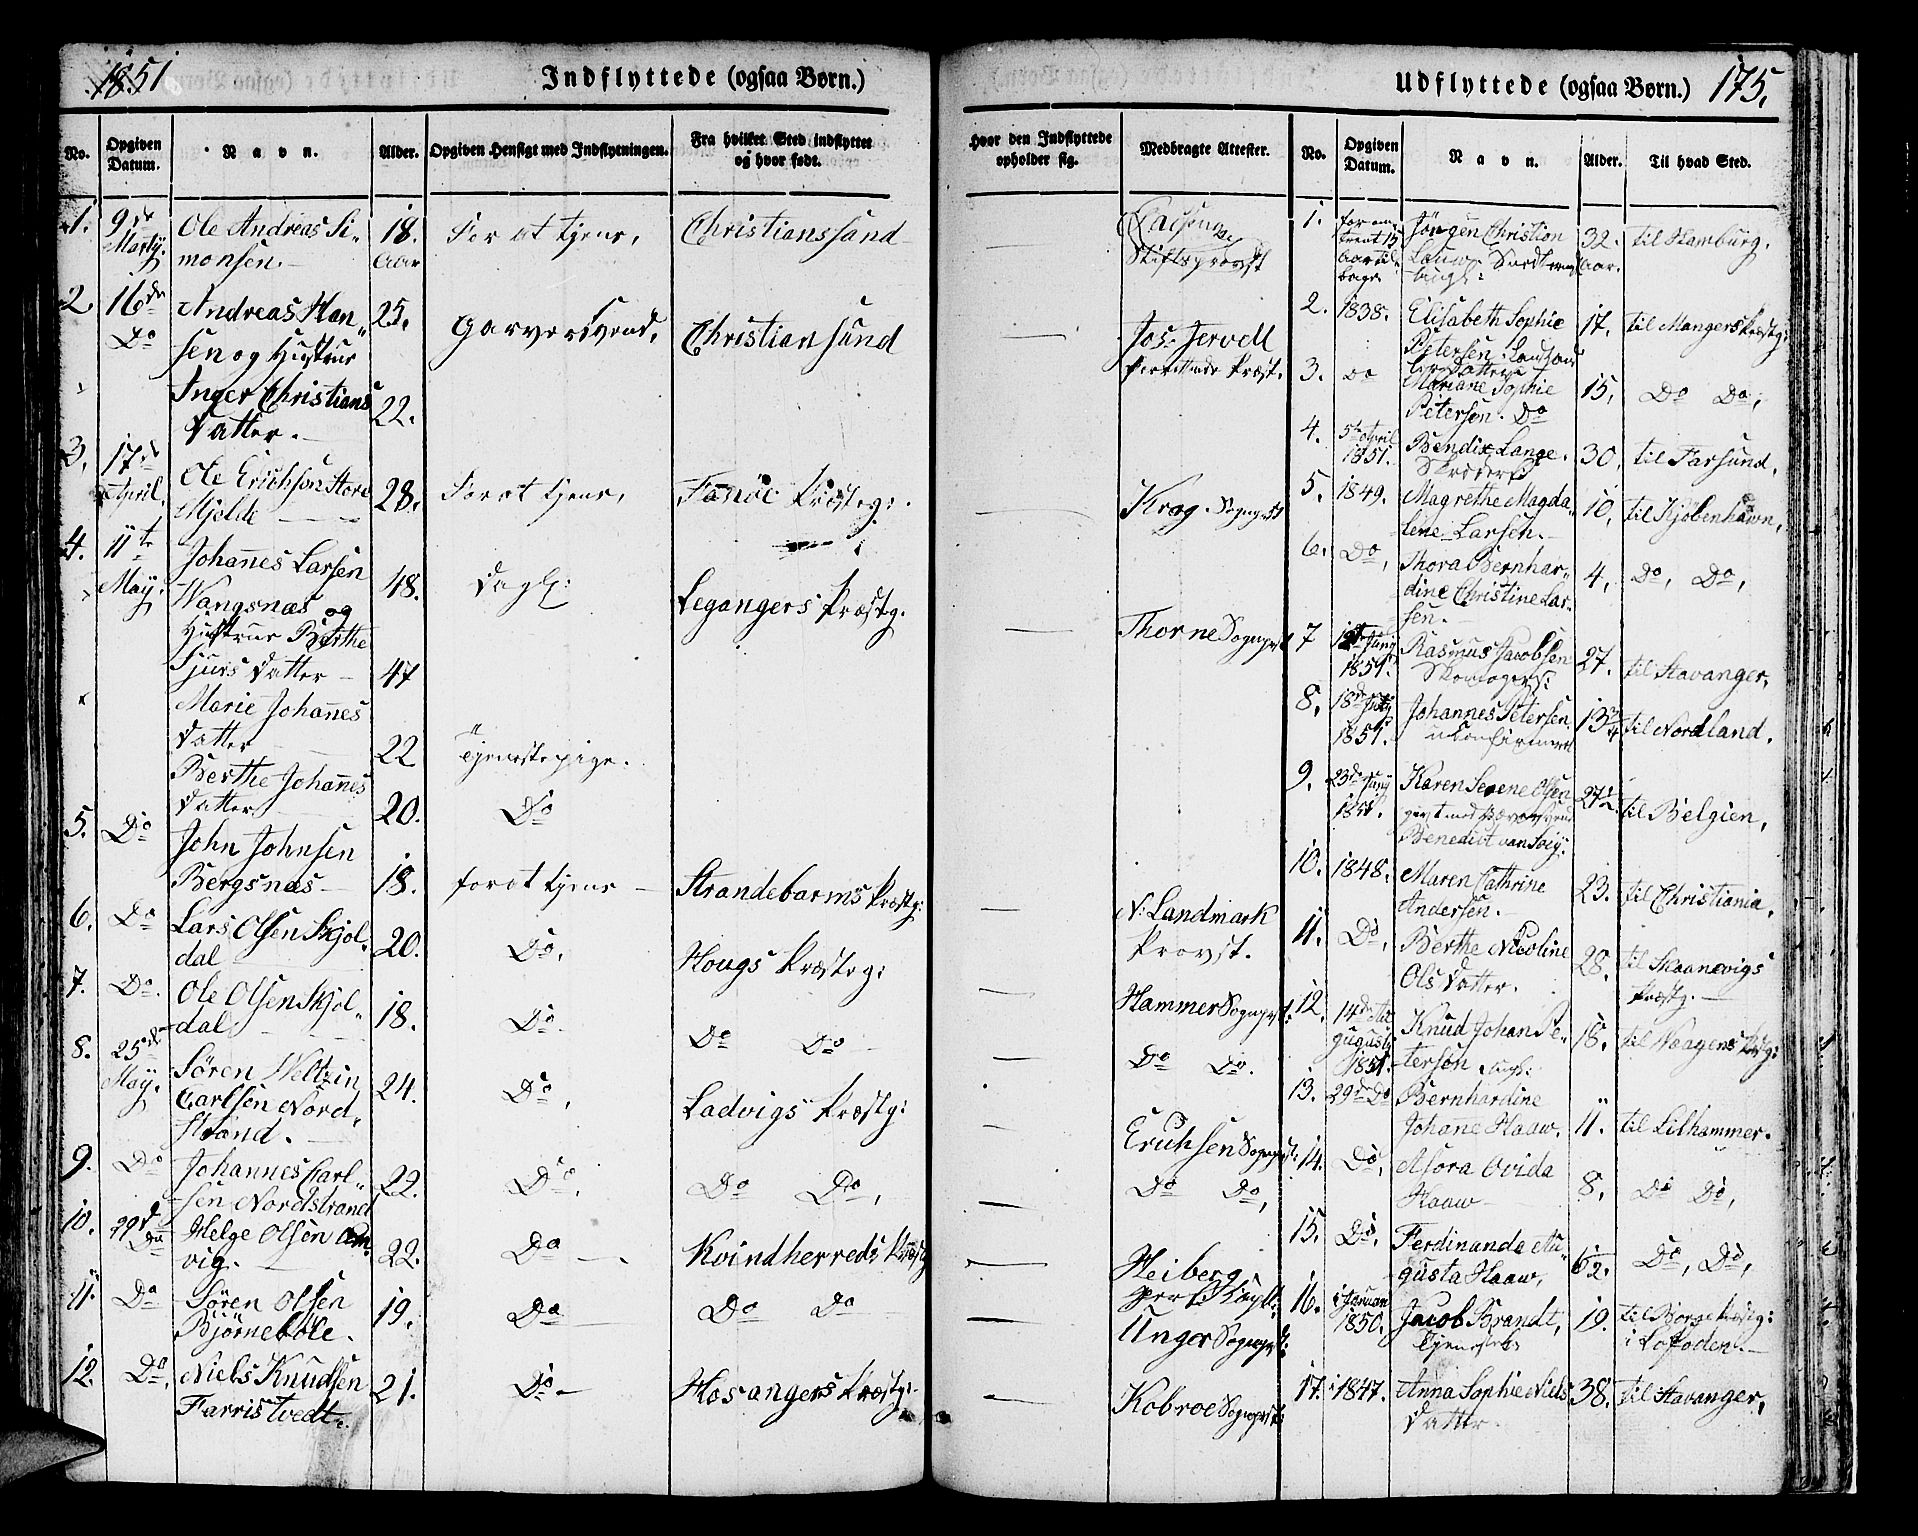 1851 Indflyttede (ogsaa Børn.)
No. Opgiven Datum. Navn. Alder. Opgiven Hensigt med Indflytningen. Fra hvilket Sted indflyttet og hvor født.
1. 9de Ole Andreas Si- 18. For at tjene, Christianssand
monsen. Aar
2. 16de Andreas Han- 25. Garversvend, Christiansund
Do sen og Hustrue
Inger Christians 22.
Datter.
3. 17de Ole Erichsen Store 28. For at tjene, Fanøe Præsteg:
April. Mjelde
4. 11te Johañes Larsen 48. Dagl: Legangers Præstg.
May. Wangsnæs og
Hustrue Berthe
Sjurs Datter 47
Marie Johañes
Datter 22 Tjenestepige.
Berthe Johañes
Datter 20. Do
5. Do John Johnsen
Bergsnæs 18. for at tjene Strandebarms Præstg:
6. Do Lars Olsen Skjol- 20. Do, Hougs Præsteg:
dal
7. Do. Ole Olsen Skjol- 18. Do. Do Do
dal
8. 25de Søren Weltzin 24. Do, Ladvigs Præstg:
May. Carlsen Nord-
strand.
9. Do Johannes Carl- 22. Do, Do Do,
sen Nordstrand
10. 29de Helge Olsen 22. Do Kvindherreds Præstg
Do vig.
11. Do Søren Olsen 19. Do Do Do
Bjørnebole.
12. Do, Niels Knudsen 21. Do Hosangers Præstg:
Farristvedt.
Udflyttede (ogsaa Børn.) 175.
Hvor den Indflyttede opholder sig. Medbragte Attester. No. Opgiven Datum. Navn. Alder. Til hvad Sted.
Stiftsprovst
Jos: Jervell
Præst.
Krog. Sognepst
Thorne Sognepst
N: Landmark
Provst.
Hammer Sognepst.
Do Do.
Erichsen Sognepst.
Do Do,
Heiberg
pers: Capll:
Unger Sognepst:
Kobroe Sognepst:
1. for om- Jörgen Christian 32. til Hamburg.
trent 15 Aar.
Aar til-
bage
2. 1838. Elisabeth Sophie 17. til Mangers Præstg:
Petersen.
3. Do Mariane Sophie 15, Do Do,
Petersen. Do
4. 5te April Bendix Lange. 30, til Farsund.
1851. Skrædersd
5. 1849. Magrethe Magda- 10, til Kjøbenhavn,
lene Larsen.
6. Do, Thora Bernhar- 4, Do, Do,
dine Christine Lar-
sen.
7 Juny Rasmus Jacobsen 27. til Stavanger,
1851. Skomagers:
8. 18de Johannes Petersen til Nordland.
1851. ukonfirmeret
9. 23de Juny Karen Serene Olsen til Belgien,
1851. givt med
Benedict van
10. 1848. Maren Cathrine 23. til Christiania,
Andersen.
11. Do, Berthe Nicoline 28. til Skaanevigs
Ols Datter. Præstg.
12. 14de Au- Knud Johan Pe- 18. til Præstg:
gusty tersen
1851.
13. 29de Do Bernhardine 11. til Lilhammer.
Johane Haaw.
14. Do, Alora Ovida 8. Do Do,
Haaw
15. Do, Ferdinande Au- 6 1/2. Do, Do,
gusta Haaw,
16. i Januar Jacob Brandt, 19. til Borge Præstg:
1850. i Lofoden.
17. i 1847. Anna Sophie Niels 38. til Stavanger,
Datter.